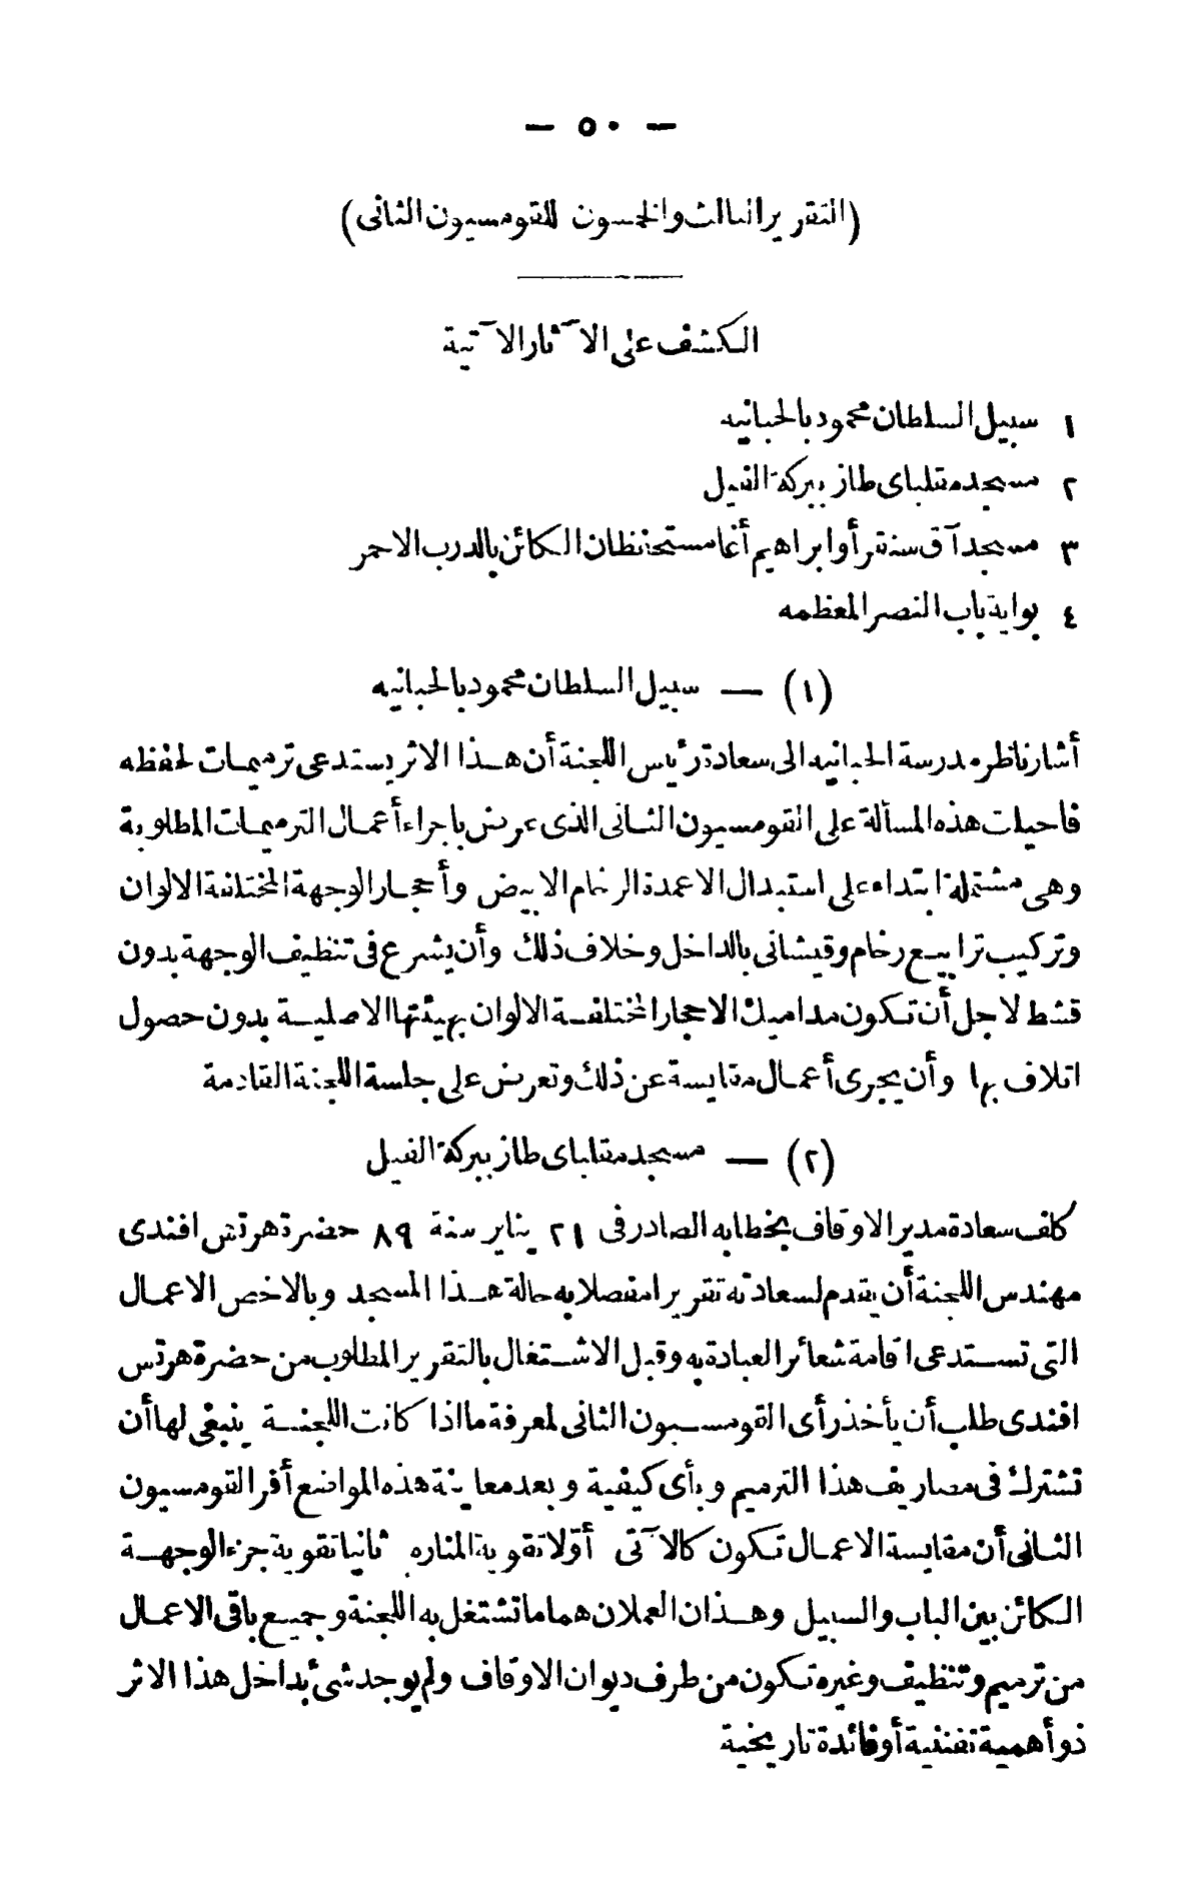 — ٥٠ —
(التقرير الثالث والخمسون للقومسيون الثانى)
الكشف على الآثار الآتية
١ سبيل السلطان محمود بالحبانيه
٢ مسجد مقلباى طاز ببركة الفيل
٣ مسجد آق سنقر أو ابراهيم أغا مستحفظان الكائن بالدرب الاحمر
٤ بوابة باب النصر المعظمه
(١) — سبيل السلطان محمود بالحبانيه
أشار ناظر مدرسة الحبانيه الى سعادة رئيس اللجنة أن هذا الاثر يستدعى ترميمات لحفظه
فاحيلت هذه المسألة على القومسيون الثانى الذى عرض باجراء أعمال الترميمات المطلوبة
وهى مشتملة ابتداء على استبدال الاعمدة الرخام الابيض وأحجار الوجهة المختلفة الالوان
وتركيب ترابيع رخام وقيشانى بالداخل وخلاف ذلك وأن يشرع فى تنظيف الوجهة بدون
قشط لاجل أن تكون مداميك الاحجار المختلفة الالوان بهيئتها الاصلية بدون حصول
اتلاف بها وأن يجرى أعمال مقايسة عن ذلك وتعرض على جلسة اللجنة القادمة
(٢) — مسجد مقلباى طاز ببركة الفيل
كلف سعادة مدير الاوقاف بخطابه الصادر فى ٢١ يناير سنة ٨٩ حضرة هرتس افندى
مهندس اللجنة أن يقدم لسعادته تقريرا مفصلا به حالة هذا المسجد وبالاخص الاعمال
التى تستدعى اقامة شعائر العبادة به وقبل الاشتغال بالتقرير المطلوب من حضرة هرتس
افندى طلب أن يأخذ رأى القومسيون الثانى لمعرفة ما اذا كانت اللجنة ينبغى لها أن
تشترك فى مصاريف هذا الترميم وبأى كيفية وبعد معاينة هذه المواضع أقر القومسيون
الثانى أن مقايسة الاعمال تكون كالآتى أوّلا تقوية المناره ثانيا تقوية جزء الوجهة
الكائن بين الباب والسبيل وهذان العملان هما ما تشتغل به اللجنة وجميع باقى الاعمال
من ترميم وتنظيف وغيره تكون من طرف ديوان الاوقاف ولم يوجد شئ بداخل هذا الاثر
ذو أهمية تفننية أو فائدة تاريخية